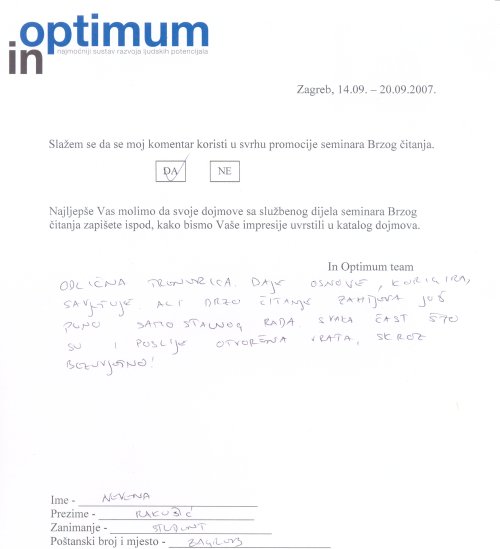 optimum
in
najmoćniji sustav razvoja ljudskih potencijala
Zagreb, 14.09. – 20.09.2007.
Slažem se da se moj komentar koristi u svrhu promocije seminara Brzog čitanja.
DA NE
Najljepše Vas molimo da svoje dojmove sa službenog dijela seminara Brzog
čitanja zapišete ispod, kako bismo Vaše impresije uvrstili u katalog dojmova.
In Optimum team
ODLIČNA TRENERICA. DAJE OSNOVE, KORIGIRA,
SAVJETUJE. ALI BRZO ČITANJE ZAHTJEVA JOŠ
PUNO SAMOSTALNOG RADA SVAKA ČAST ŠTO
SU I POSLIJE OTVORENA VRATA, SKROZ
BEZUVJETNO!
Ime - NEVENA
Prezime - RAKUŠIĆ
Zanimanje - STUDENT
Poštanski broj i mjesto - ZAGREB